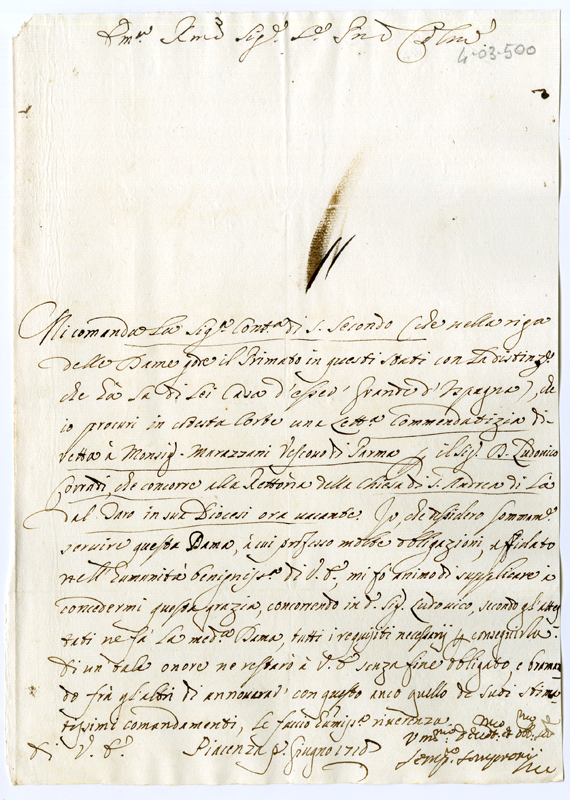 Em.mo Rmo Sig.r
4-03-500
Mi comanda La Sig.ra Cont.a di S. Secondo (che nella riga
delle Dame gode il Primato in questi Stati con La distinz.e
che hà La di Lei Casa d'esser Grande d'Ispagna), che
io procuri in codesta Corte una Lett.a Commendatizia di-
retta à Monsig.r Marazzani Vescovo di Parma p il Sig.r D. Ludovico
Corradi, che concorre alla Rettoria della Chiesa di S. Andrea di Là
dal Taro in sua Diocesi ora vacante. Io che desidero sommam.e
servire questa Dama, à cui professo molte obligazioni, affidato
nell'humanità benigniss.a di V.E. mi fò animo di supplicare à
concedermi questa grazia, concorrendo in d.o Sig.r Ludovico, secondo gl'attes
tati ne fà La med.ma Dama, tutti i requisiti necessarij p conseguirla.
Di un tale onore ne restarò à V.E. senza fine obligato e braman
do frà gl'altri di annoverar con questo anco quello de suoi stima
tissimi comandamenti, Le faccio humiliss.a riverenza.
di V.E. Piacenza p.o Giugno 1710
Sempronij